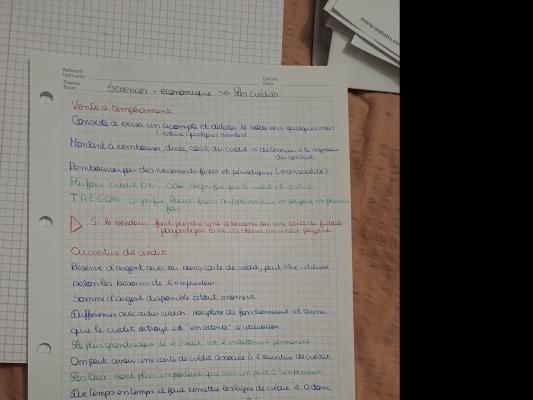 www.metabo.co
Referent
Instructor
Datum
Date
Thema
Topic
Sciences - économique → Les crédits.
Vente à tempérament
Consiste à verser un acompte et étaler le solde sur quelques mois
(voire quelques années).
Montant à rembourser, durée, coût du crédit → déterminé à la signature
du contrat
Remboursé par des versements fixes et périodiques (mensualité).
Parfois crédit 0%. Cela signifie que le crédit est gratuit
TAEG 0% signifie Aucun frais supplémentaire en payant en plusieurs
fois
Si le vendeur fait prendre une assurance ou une carte de fidélité
payante
Ouverture de crédit
Réserve d'argent avec ou sans carte de crédit, peut être utilisée
selon les besoins de l'emprunteur
Somme d'argent disponible à tout moment
Différences avec autres crédits: souplesse de fonctionnement et aussi
que le crédit octroyé est "en attente" d'utilisation
Le plus grand risque de ce crédit est l'endettement permanent
On peut avoir une carte de crédit associée à l'ouverture de crédit
Les taux sont plus important que sur un prêt à tempérament
De temps en temps il faut remettre les lignes de crédit à 0 donc